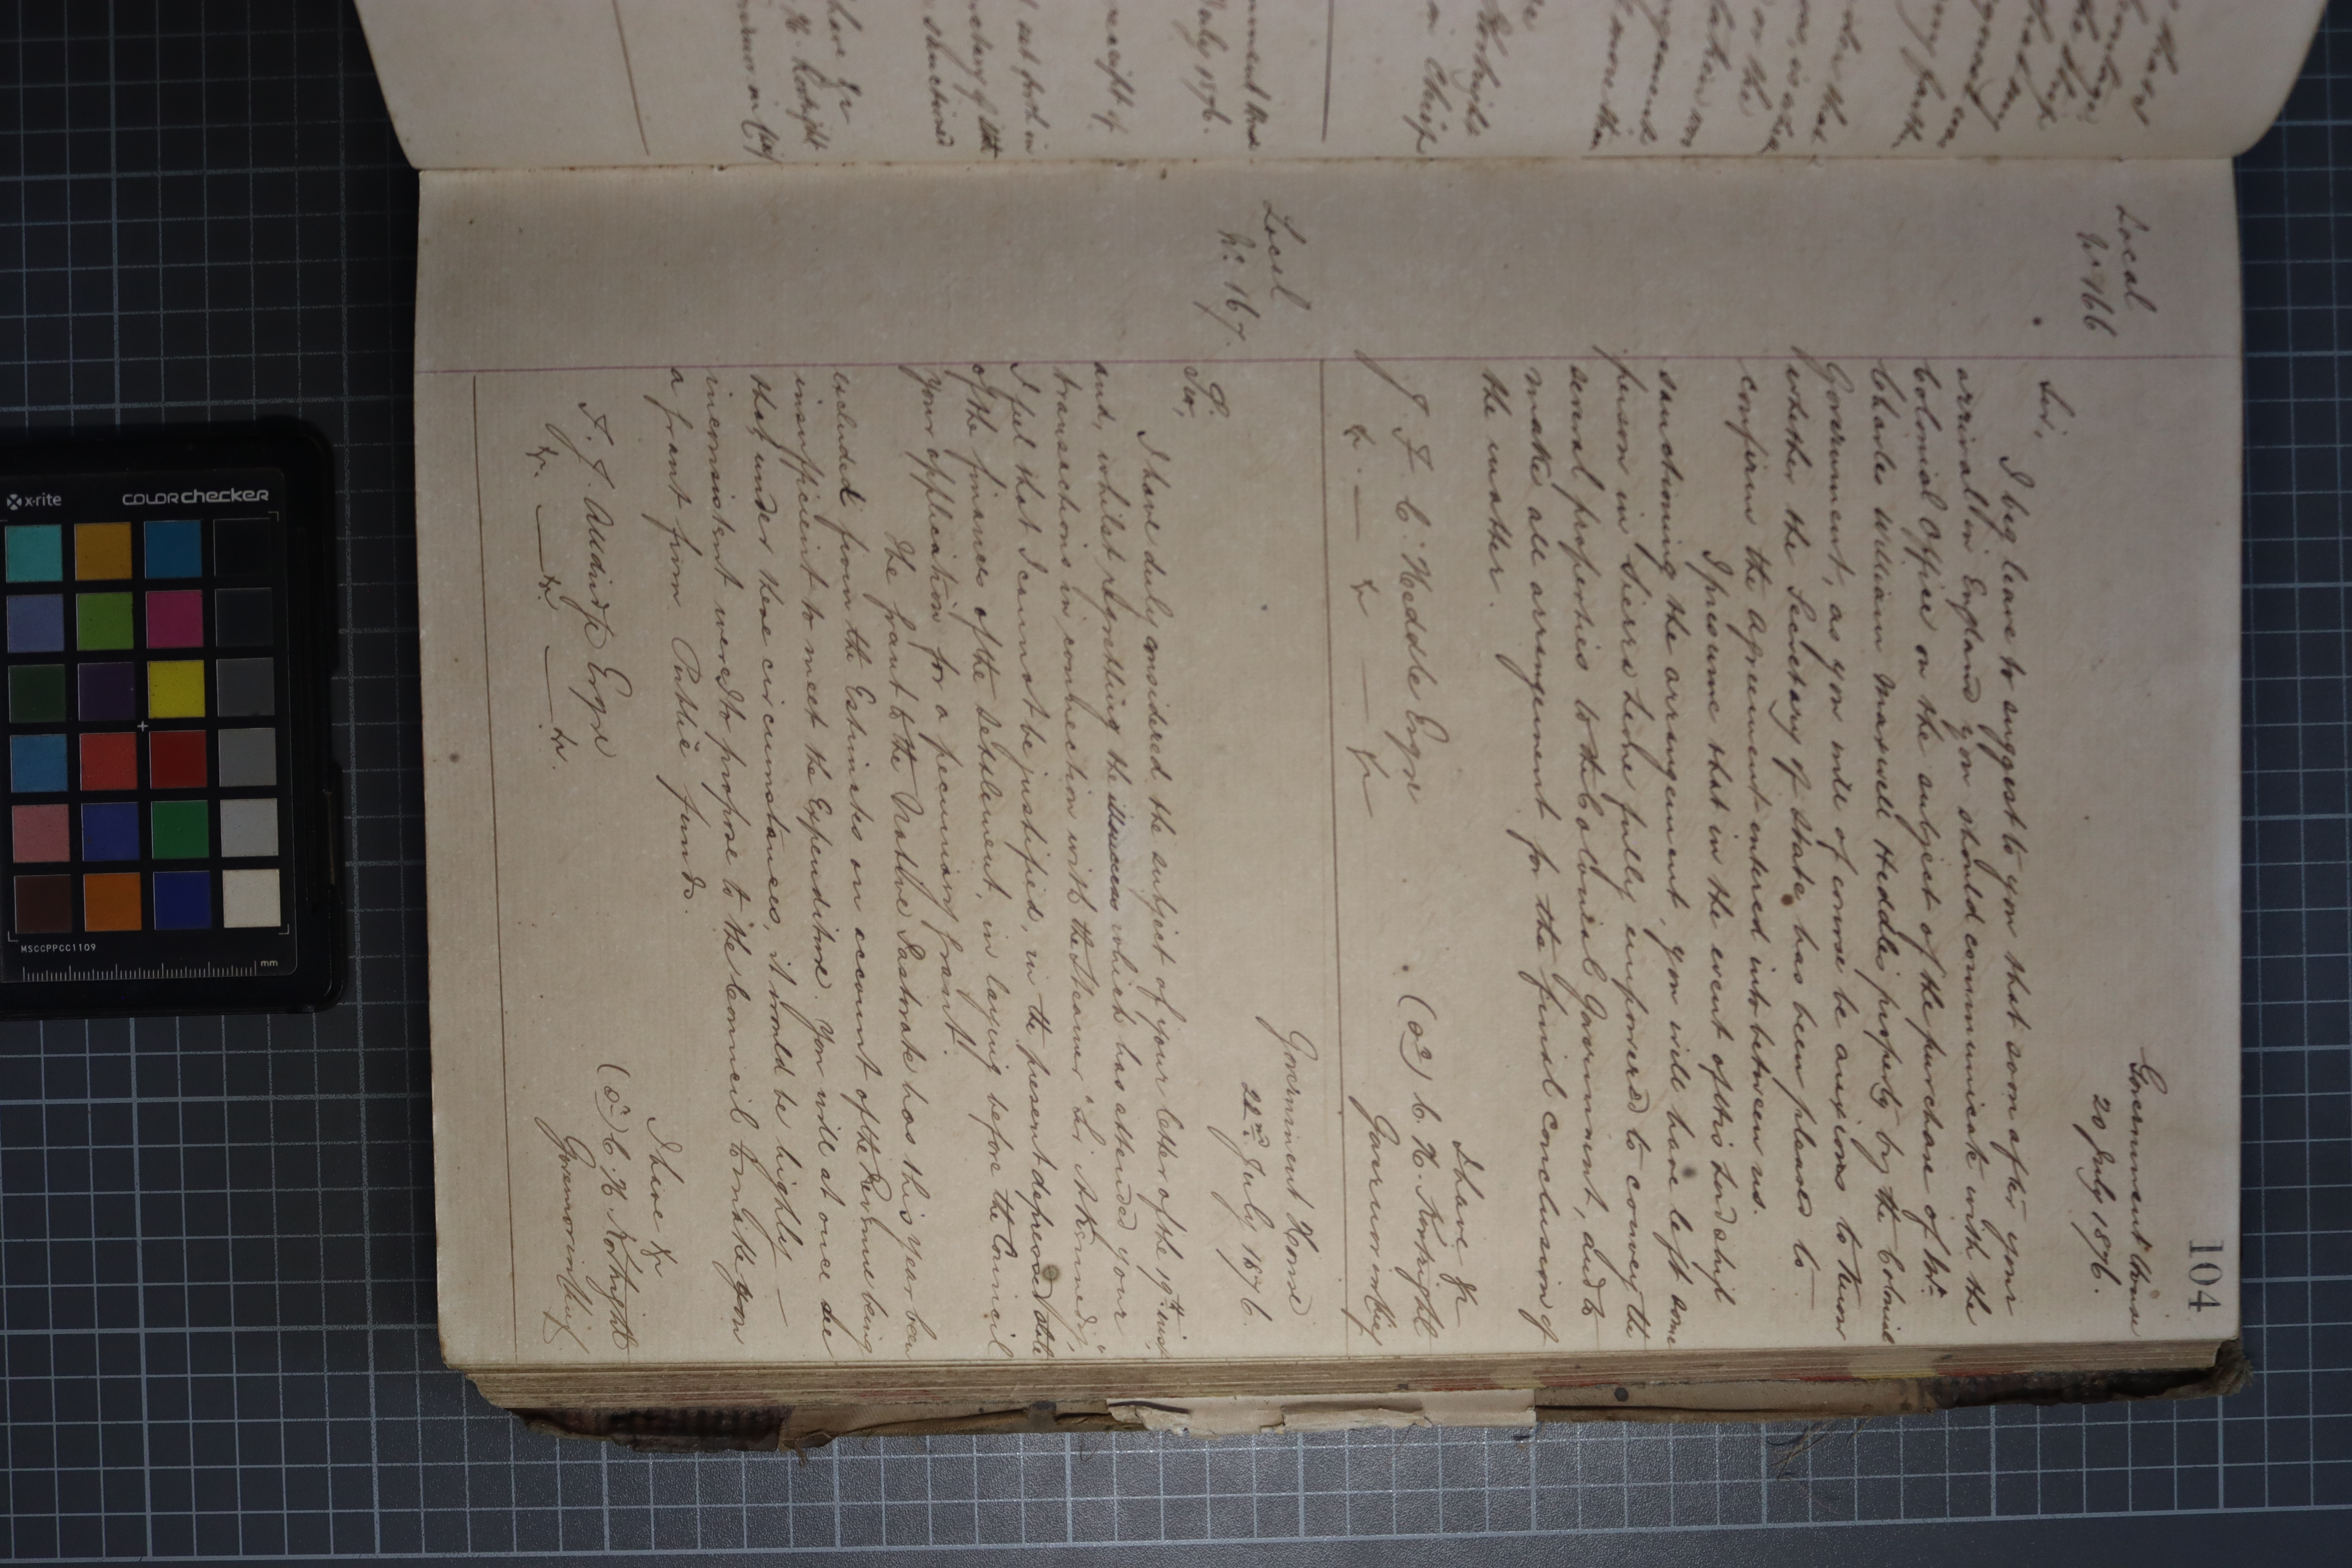 104
Local
No 166
Government House
20 July 1876.
Sir,
I beg leave to suggest to you that soon after your
arrival in England you should communicate with the
Colonial Office on the subject of the purchase of Mr.
Charles William Maxwell Heddle's property by the Colonial
Government, as you will of course be anxious to know
whether the Secretary of State has been pleased to
confirm the agreement entered into between us.
I presume that in the event of His Lordship
sanctioning the arrangement, you will have left some
person in Sierra Leone fully empowered to convey the
several properties to the Colonial Government, and to
make all arrangement for the final conclusion of
the matter.
I have &c
(sd) C. H. Kortright
Governor in Chief
J. F. C. Heddle Esqre
&c — &c — &c
Local
No: 167.
Government House
22nd July 1876.
Sir,
I have duly considered the subject of your letter of the 19th inst.
and, whilst regretting the illsuccess which has attended your
transactions in connection with the Steamer "Sir A Kennedy",
I feel that I cannot be justified, in the present depressed state
of the finances of the Settlement, in laying before the Council
your application for a pecuniary grant.
The grant to the Native Pastorate has this year been
excluded from the Estimates on account of the Revenue being
insufficient to meet the Expenditure. You will at once see
that under these circumstances, it would be highly —
inconsistent were I to propose to the Council to make you
a grant from Public funds.
I have &c
(sd) C. H. Kortright
Governor in Chief
Esqre
&c. — &c. — &c.
x-rite
colorchecker
MSCCPPCC1109
mm